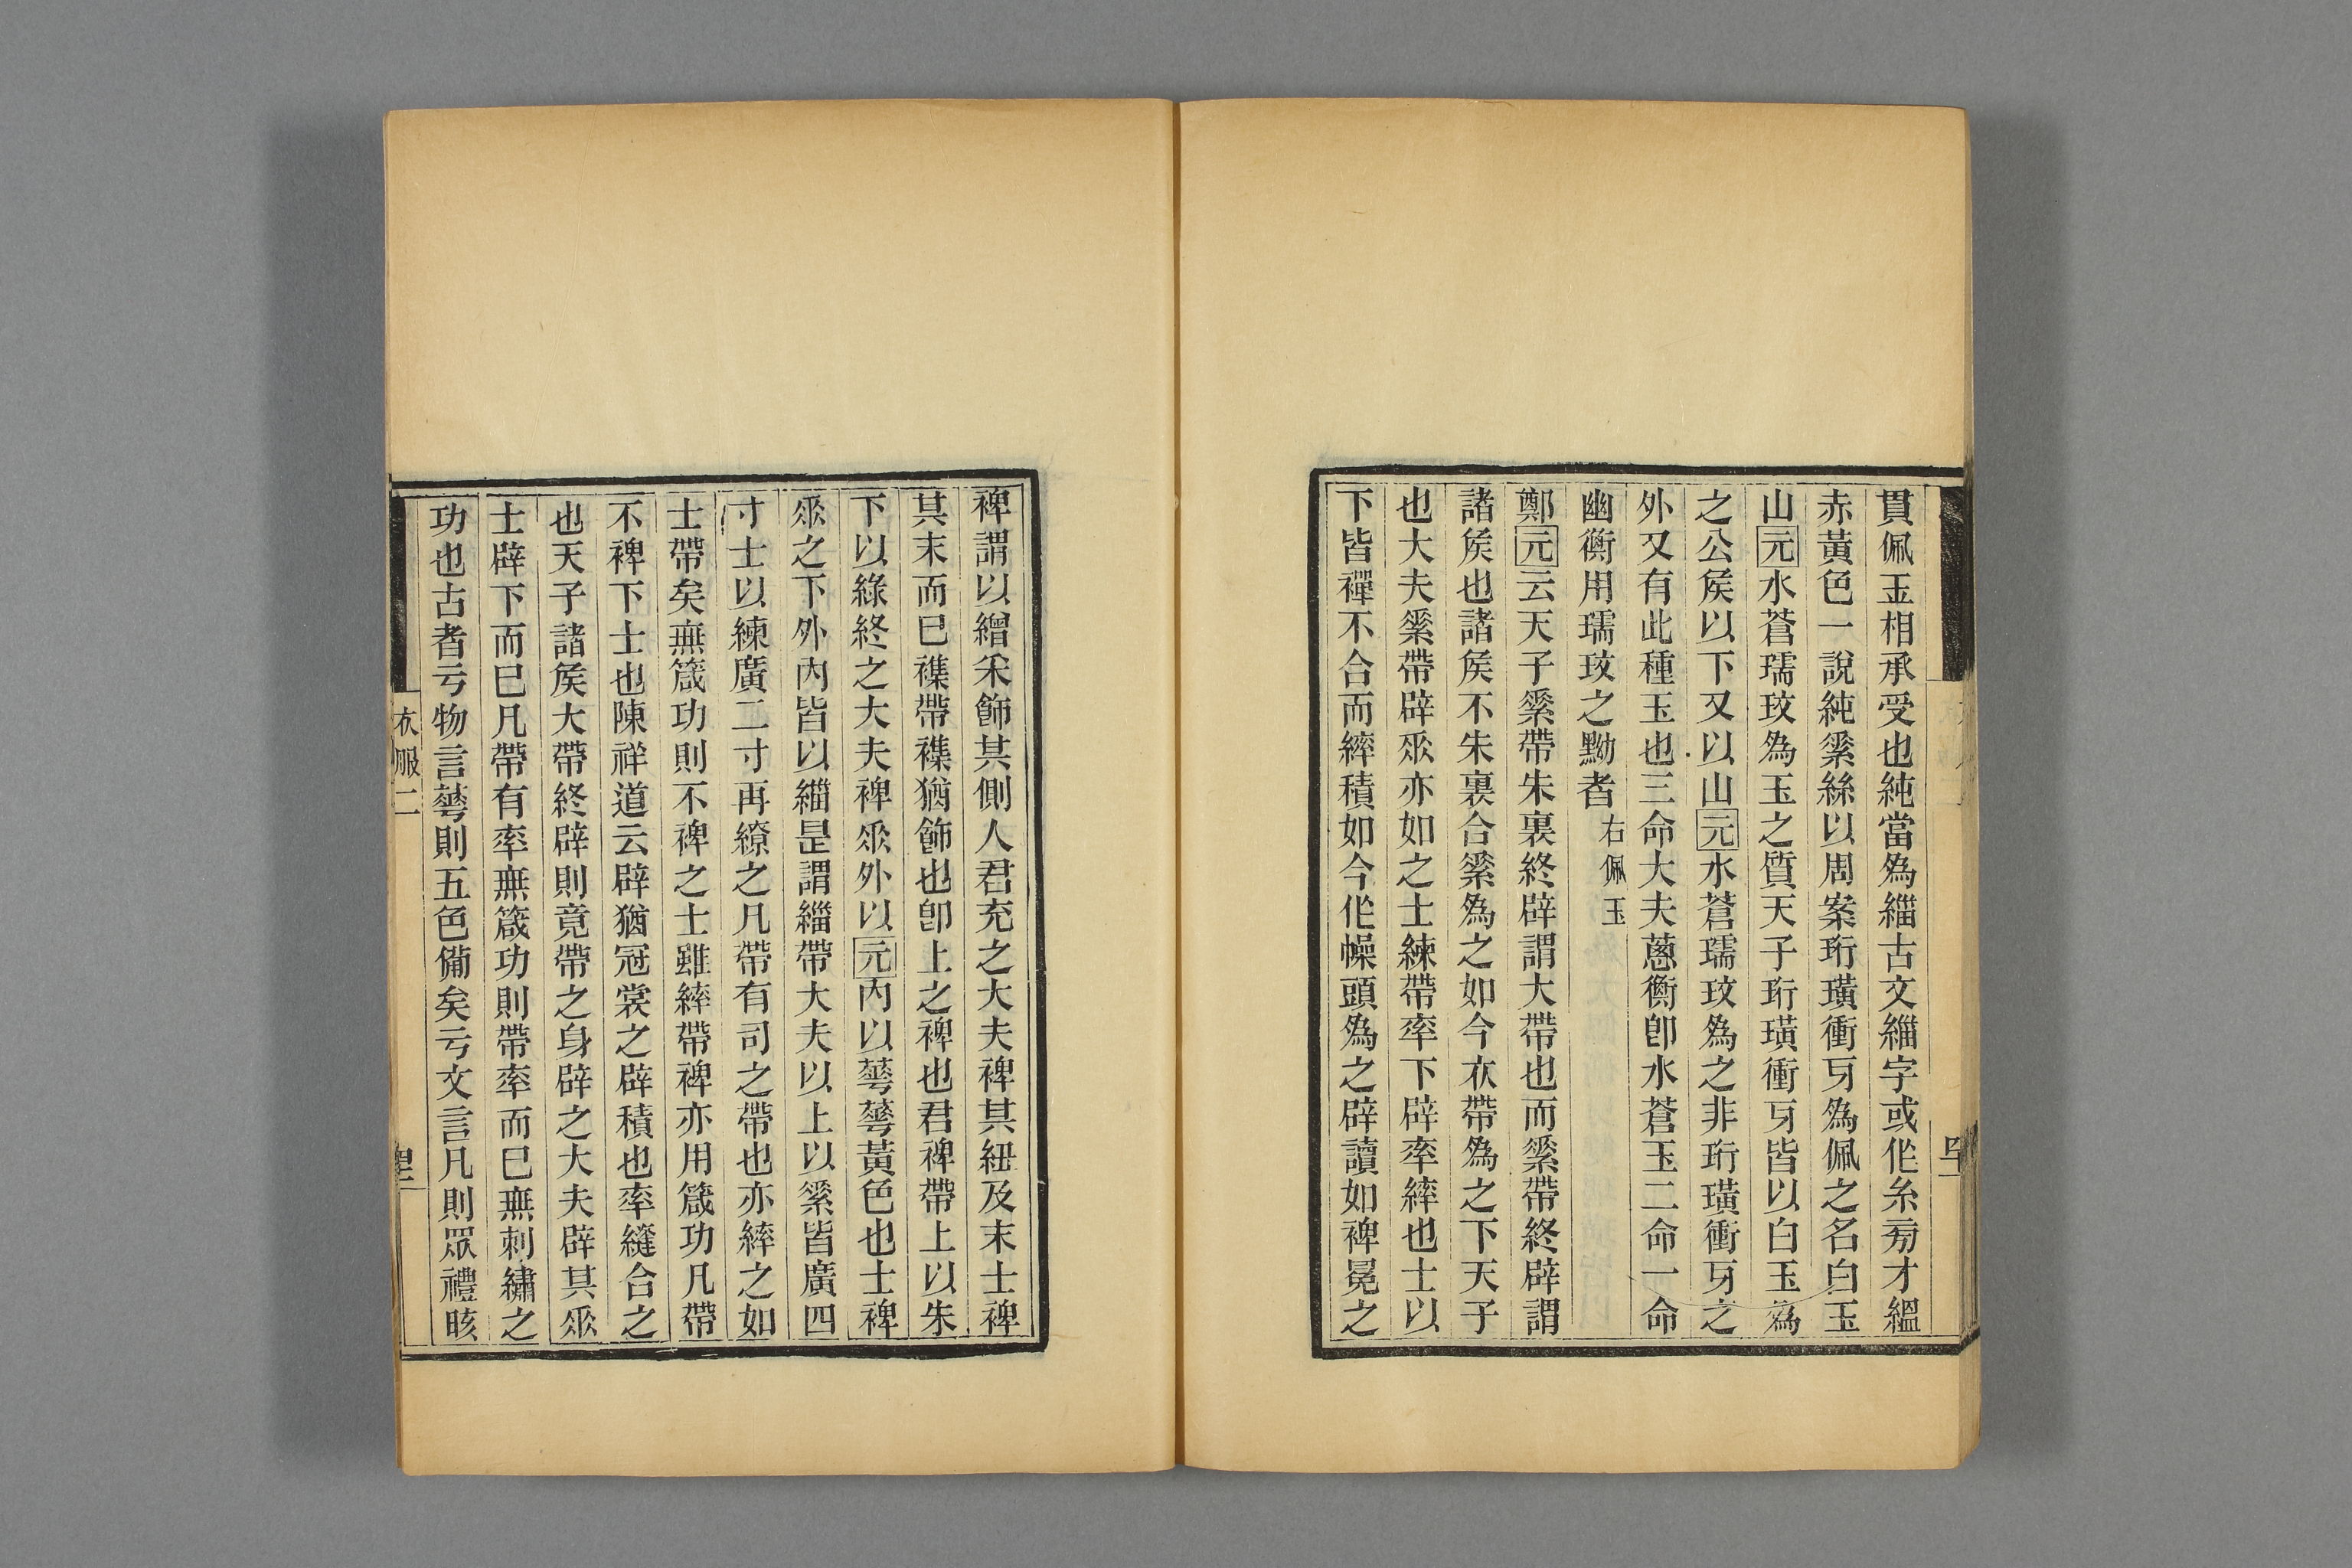 貫佩玉相承受也純當爲緇古文緇字或作糸㫄才緼
赤黃色一說純綦絲以周案珩璜衝牙爲佩之名白玉
山元水蒼瓀玟爲玉之質天子珩璜衝牙皆以白玉爲
之公矦以下又以山元水蒼瓀玟爲之非珩璜衝牙之
外又有此種玉也三命大夫蔥衡卽水蒼玉二命一命
幽衡用瓀玟之黝者右佩玉
鄭元云天子素帶朱裏終辟謂大帶也而素帶終辟謂
諸矦也諸矦不朱裏合素爲之如今衣帶爲之下天子
也大夫素帶辟𠂹亦如之士練帶率下辟率繂也士以
下皆襌不合而繂積如今作幧頭爲之辟讀如裨冕之
裨謂以繒采飾其側人君充之大夫裨其紐及末士裨
其末而已襍帶襍猶飾也卽上之裨也君裨帶上以朱
下以綠終之大夫裨𠂹外以元內以蕐蕐黃色也士裨
𠂹之下外內皆以緇是謂緇帶大夫以上以素皆廣四
寸士以練廣二寸再繚之凡帶有司之帶也亦繂之如
士帶矣無箴功則不裨之士雖繂帶裨亦用箴功凡帶
不裨下士也陳祥道云辟猶冠裳之辟積也率縫合之
也天子諸矦大帶終辟則竟帶之身辟之大夫辟其𠂹
士辟下而已凡帶有率無箴功則帶率而已無刺繡之
功也古者亏物言蕐則五色備矣亏文言凡則眾禮晐
衣服二